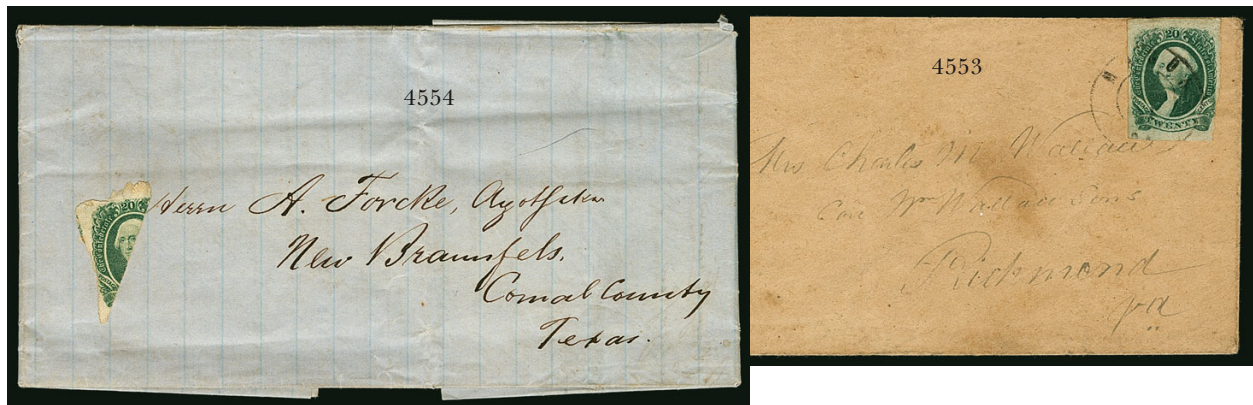 4554
Herrn A. Forcke, Apotheker
New Braunfels.
Comal County
Texas.
20
4553
20
TWENTY
Mrs Charles M. Wallace
Care Wm Wallace Sons
Richmond
Va